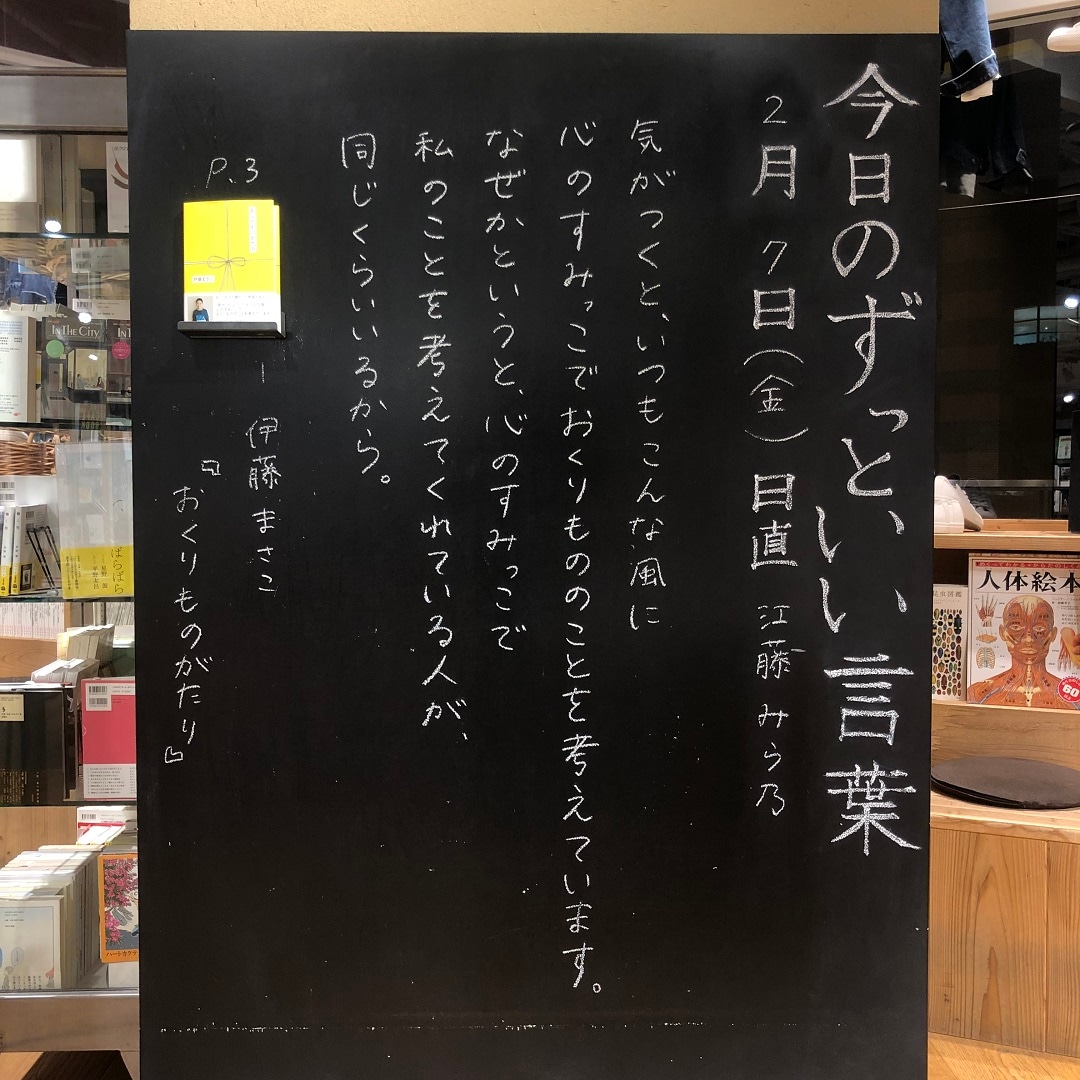 今日のずっといい言葉
2月7日(金) 日直 江藤みら乃
気がつくと、いつもこんな風に
心のすみっこでおくりもののことを考えています。
なぜかというと、心のすみっこで
私のことを考えてくれている人が、
同じくらいいるから。
P.3
伊藤まさこ
『おくりものがたり』
IN THE CITY
ばらばら
星野 源
平野太呂
ハートカクテル
昆虫図鑑
人体絵本
60